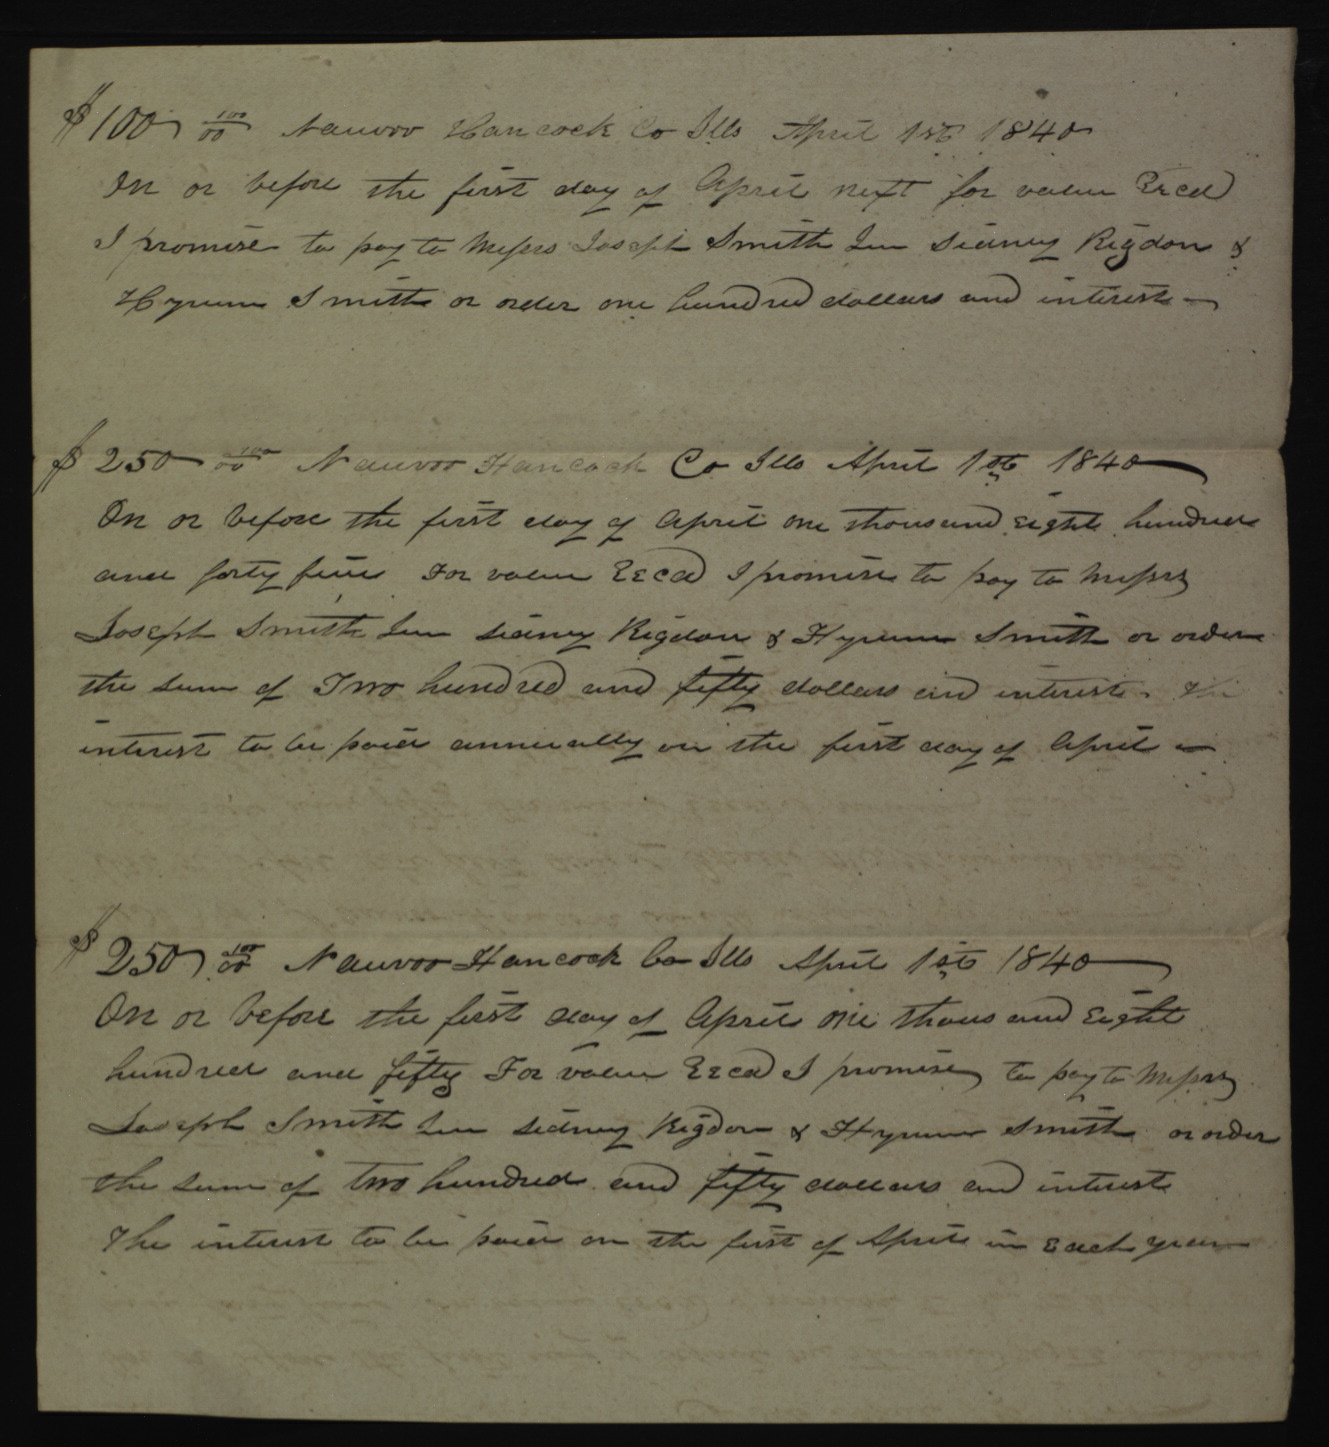 $100 100/00 Nauvoo Hancock Co Ills April 1st 1840
On or before the first day of April next for value Recd
I promise to pay to Messrs Joseph Smith Jun Sidney Rigdon &
Hyrum Smith or order one hundred dollars and interest —
$250 100/00 Nauvoo Hancock Co Ills April 1st 1840
On or before the first day of April one thousand eight hundred
and forty five For value Recd I promise to pay to Messrs
Joseph Smith Jun Sidney Rigdon & Hyrum Smith or order
the sum of Two hundred and fifty dollars and interest. the
interest to be paid annually on the first day of April —
$250 100/00 Nauvoo Hancock Co Ills April 1st 1840
On or before the first day of April one thousand Eight
hundred and fifty For value Recd I promise to pay to Messrs
Joseph Smith Jun Sidney Rigdon & Hyrum Smith or order
the sum of two hundred and fifty dollars and interest
The interest to be paid on the first of April in Each year